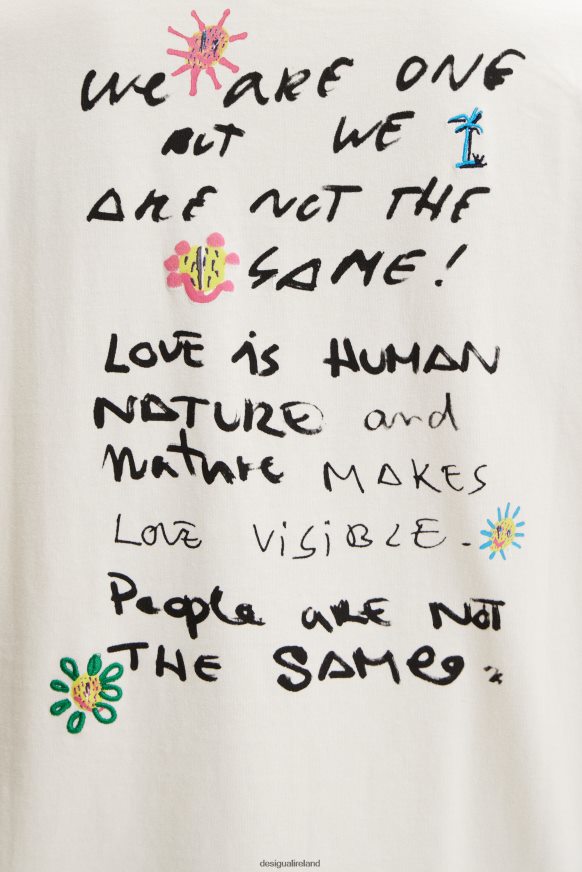 We ARE ONE
BUT WE
ARE NOT THE
SAME!
LOVE is HUMAN
NATURE and
Nature MAKES
LOVE VISIBLE.
People ARE NOT
THE SAME.
desigualireland